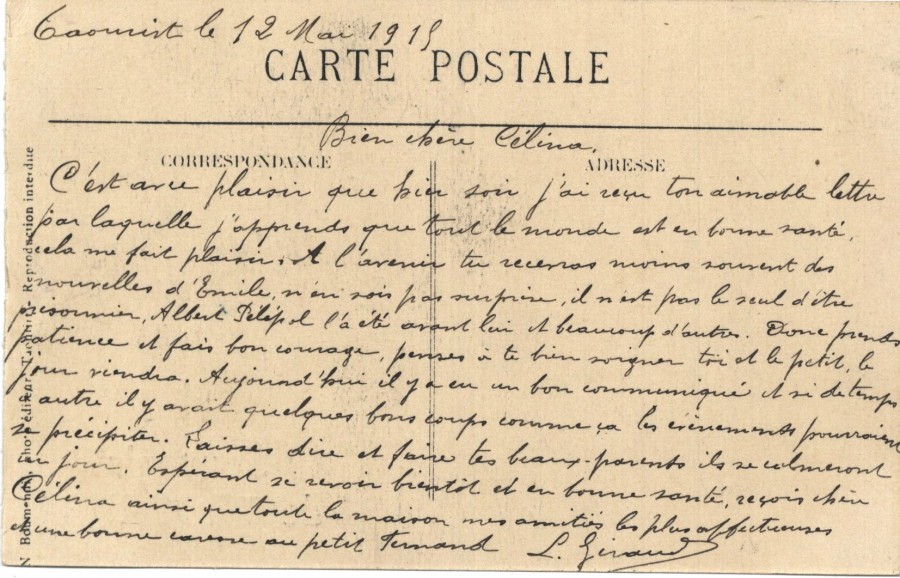 Taourirt le 12 Mai 1915
CARTE POSTALE
Bien chère Célina,
CORRESPONDANCE
ADRESSE
C'est avec plaisir que hier soir j'ai reçu ton aimable lettre
par laquelle j'apprends que tout le monde est en bonne santé,
cela me fait plaisir. A l'avenir tu recevras moins souvent des
nouvelles d'Emile, n'en sois pas surprise, il n'est pas le seul d'être
prisonnier, Albert l'a été avant lui et beaucoup d'autres. Donc prends
patience et fais bon courage, penses à te bien soigner toi et le petit, le
jour viendra. Aujourd'hui il y a eu un bon communiqué et si de temps
autre il y avait quelques bons coups comme ça les évènements pourraient
se précipiter. Laisses dire et faire tes beaux-parents ils se calmeront
un jour. Espérant se revoir bientôt et en bonne santé, reçois chère
Célina ainsi que toute la maison mes amitiés les plus affectueuses
et une bonne caresse au petit Fernand L. Giraud
Reproduction interdite